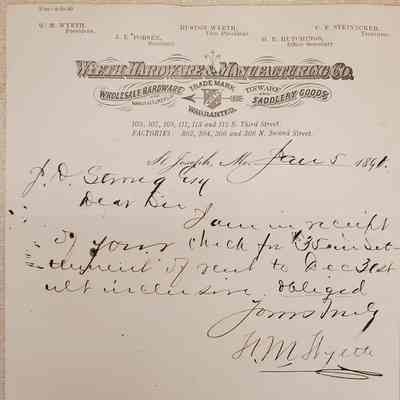 W. M. WYETH,
President.
HUSTON WYETH,
Vice President.
C. F. STEINACKER,
Treasurer.
Secretary.
H. E. HUTCHINGS,
Office Secretary
WYETH HARDWARE & MANUFACTURING CO.
WHOLESALE HARDWARE
TRADE MARK
TINWARE
AND
SADDLERY GOODS
MANUFACTURERS
WARRANTED.
105, 107, 109, 111, 113 and 115 N. Third Street.
FACTORIES: 302, 304, 306 and 308 N. Second Street.
St. Joseph, Mo., Jan 5 1891.
J. D. Strong Esq
Dear Sir
I am in receipt
of your check for $35 in set-
tlement of rent to Dec 31st
ult inclusive. Obliged
Yours truly
W. M. Wyeth